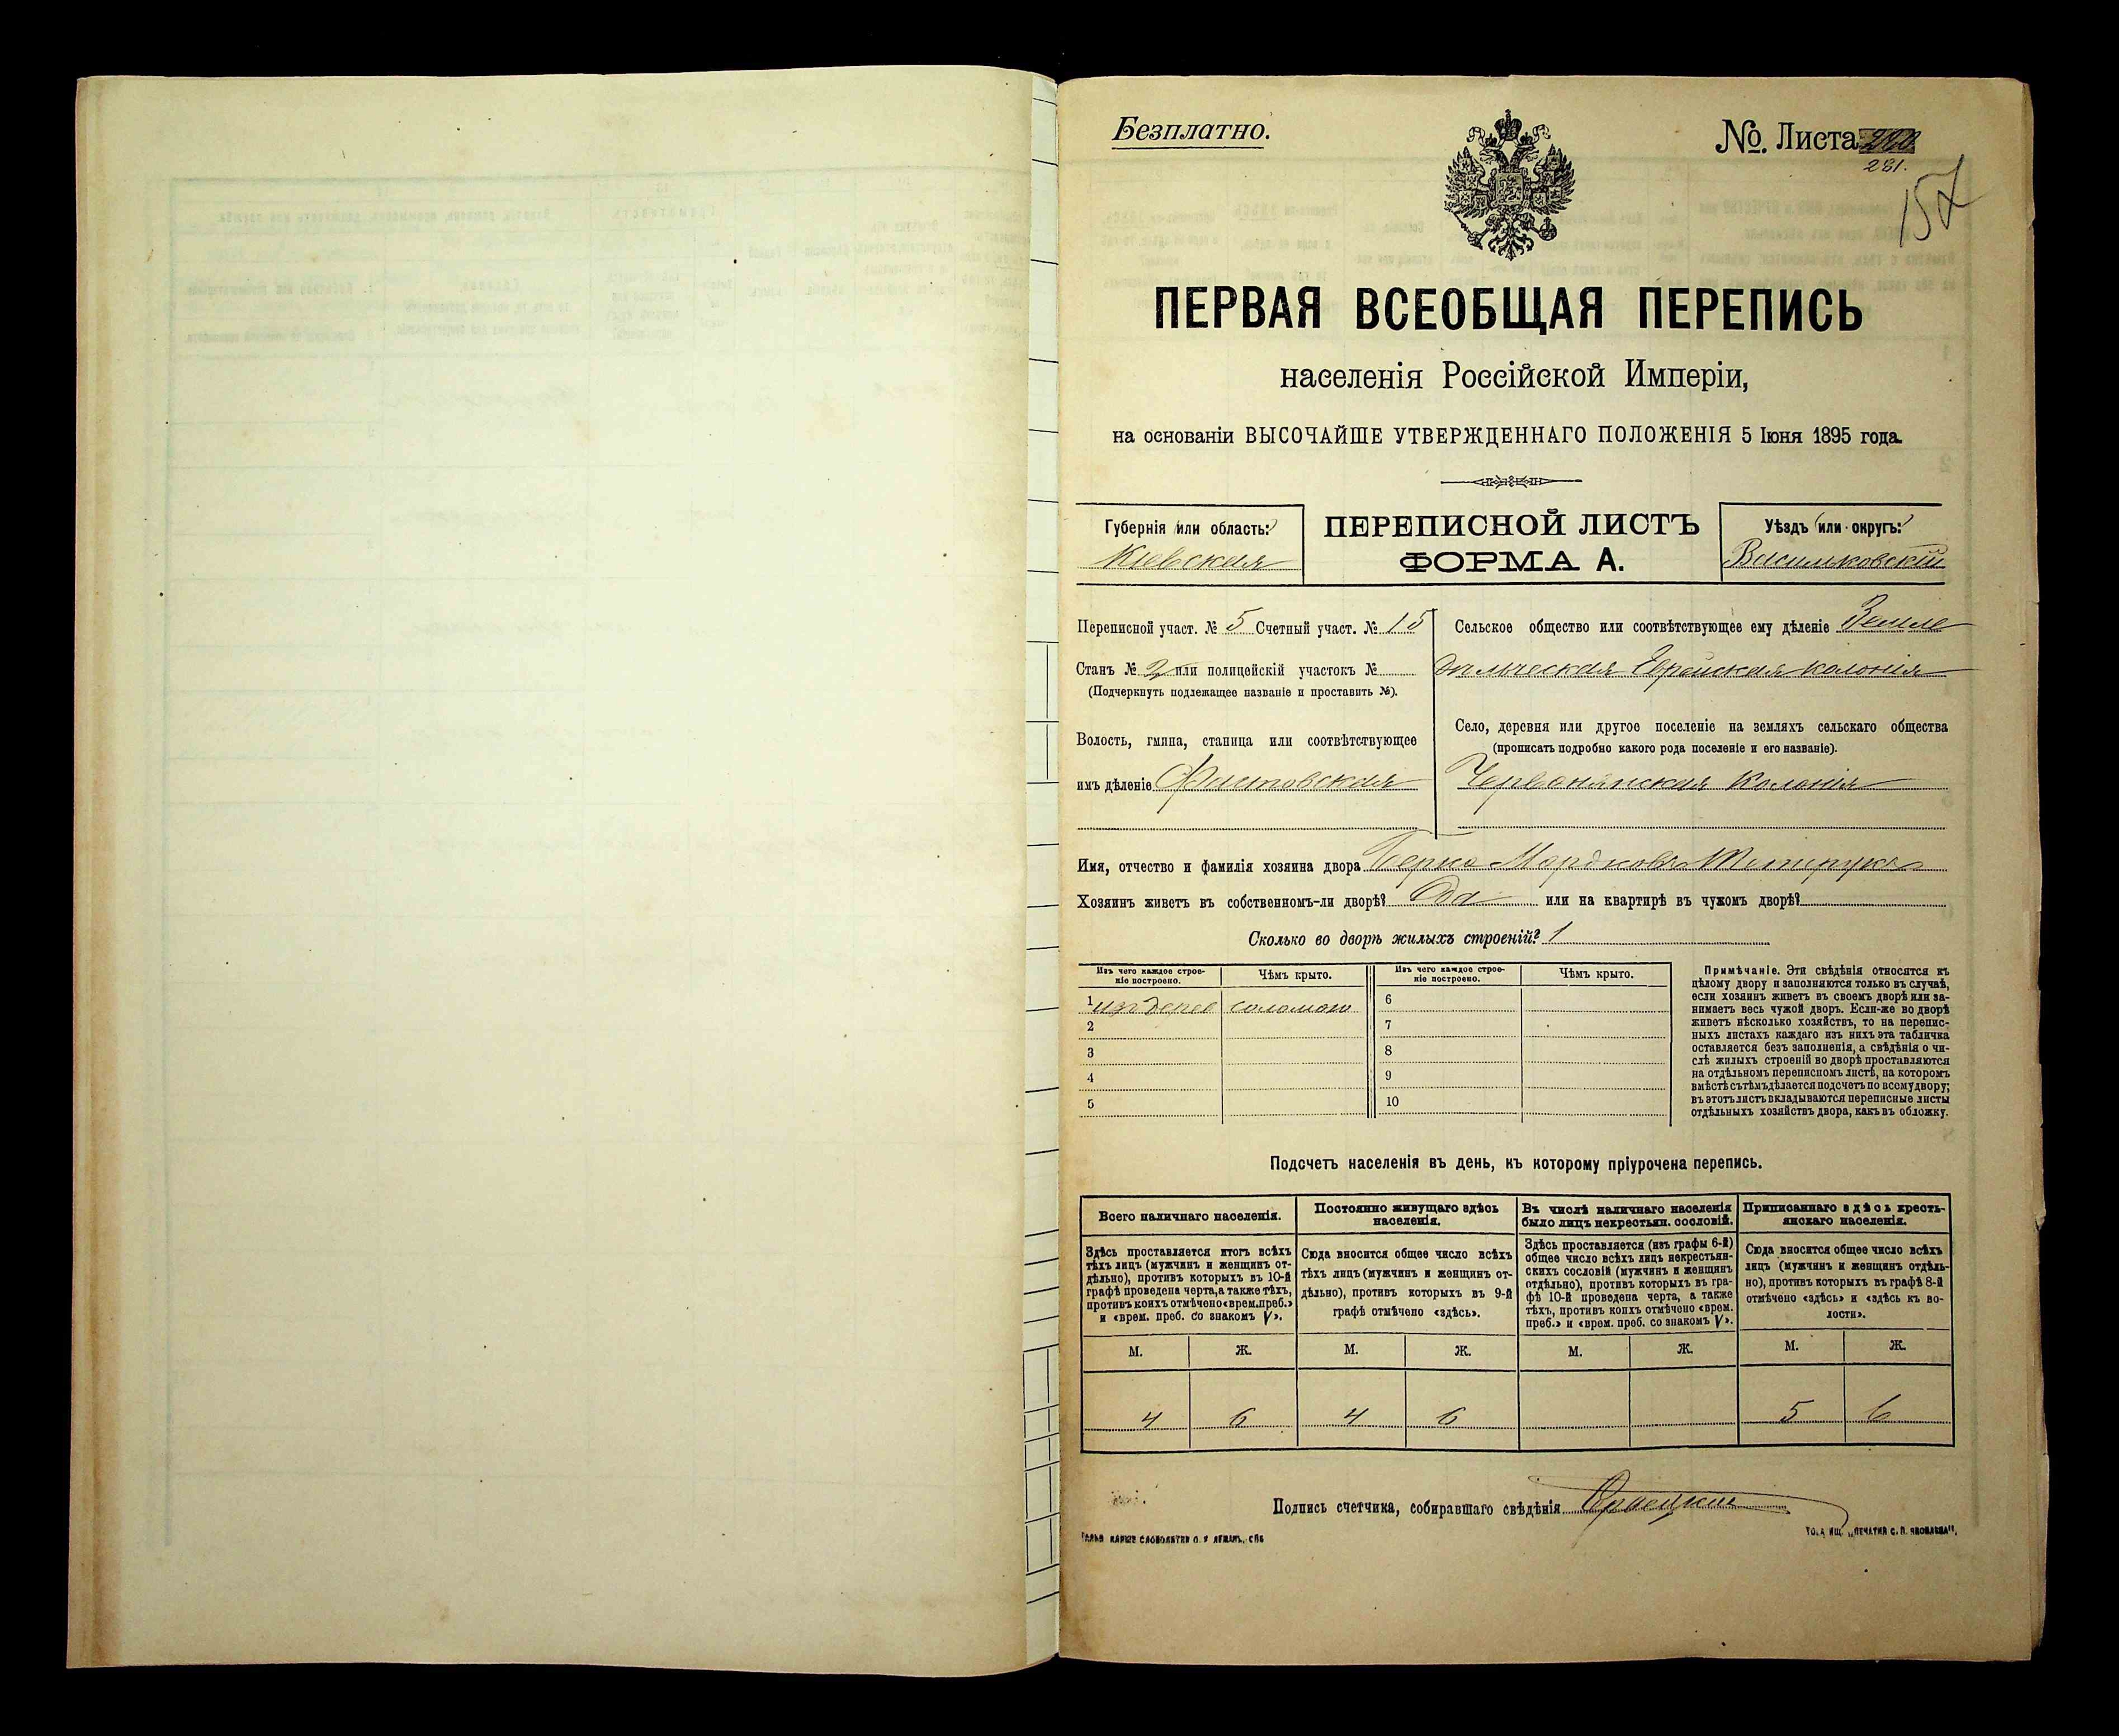 Безплатно.
№. Листа
281.
157
ПЕРВАЯ ВСЕОБЩАЯ ПЕРЕПИСЬ
населенія Россійской Имперіи,
на основаніи ВЫСОЧАЙШЕ УТВЕРЖДЕННАГО ПОЛОЖЕНІЯ 5 Іюня 1895 года.
Губернія (или область:)
Кіевская
ПЕРЕПИСНОЙ ЛИСТЪ
ФОРМА А.
Уѣздъ (или округъ:)
Васильковскій
Переписной участ. № 5 Счетный участ. № 15
Станъ № 2 или полицейскій участокъ №
(Подчеркнуть подлежащее названіе и проставить №).
Волость, гмина, станица или соотвѣтствующее
имъ дѣленіе Фастовская
Сельское общество или соотвѣтствующее ему дѣленіе Земле
дѣльческая Еврейская колонія
Село, деревня или другое поселеніе на земляхъ сельскаго общества
(прописать подробно какого рода поселеніе и его названіе).
Червонянская Колонія
Имя, отчество и фамилія хозяина двора Берко Мордковъ
Хозяинъ живетъ въ собственномъ-ли дворѣ? Да или на квартирѣ въ чужомъ дворѣ?
Сколько во дворѣ жилыхъ строеній? 1
Изъ чего каждое строе-
ніе построено.
Чѣмъ крыто.
1 изъ дерев соломою
2
3
4
5
Изъ чего каждое строе-
ніе построено.
Чѣмъ крыто.
6
7
8
9
10
Примѣчаніе. Эти свѣдѣнія относятся къ
цѣлому двору и заполняются только въ случаѣ,
если хозяинъ живетъ въ своемъ дворѣ или за-
нимаетъ весь чужой дворъ. Если-же во дворѣ
живетъ нѣсколько хозяйствъ, то на перепис-
ныхъ листахъ каждаго изъ нихъ эта табличка
оставляется безъ заполненія, а свѣдѣнія о чи-
слѣ жилыхъ строеній во дворѣ проставляются
на отдѣльномъ переписномъ листѣ, на которомъ
вмѣстѣ съ тѣмъ дѣлается подсчетъ по всему двору;
въ этотъ листъ вкладываются переписные листы
отдѣльныхъ хозяйствъ двора, какъ въ обложку.
Подсчетъ населенія въ день, къ которому пріурочена перепись.
Всего наличнаго населенія.
Здѣсь проставляется итогъ всѣхъ
тѣхъ лицъ (мужчинъ и женщинъ от-
дѣльно), противъ которыхъ въ 10-й
графѣ проведена черта, а также тѣхъ,
противъ коихъ отмѣчено «врем. преб.»
и «врем. преб. со знакомъ V».
Постоянно живущаго здѣсь
населенія.
Сюда вносится общее число всѣхъ
тѣхъ лицъ (мужчинъ и женщинъ от-
дѣльно), противъ которыхъ въ 9-й
графѣ отмѣчено «здѣсь».
Въ числѣ наличнаго населенія
было лицъ некрестьян. сословій.
Здѣсь проставляется (изъ графы 6-й)
общее число всѣхъ лицъ некрестьян-
скихъ сословій (мужчинъ и женщинъ
отдѣльно), противъ которыхъ въ гра-
фѣ 10-й проведена черта, а также
тѣхъ, противъ коихъ отмѣчено «врем.
преб.» и «врем. преб. со знакомъ V».
Приписаннаго здѣсь кресть-
янскаго населенія.
Сюда вносится общее число всѣхъ
лицъ (мужчинъ и женщинъ отдѣль-
но), противъ которыхъ въ графѣ 8-й
отмѣчено «здѣсь» и «здѣсь къ во-
лости».
М. Ж. М. Ж. М. Ж. М. Ж.
4 6 4 6 5 6
Подпись счетчика, собиравшаго свѣдѣнія